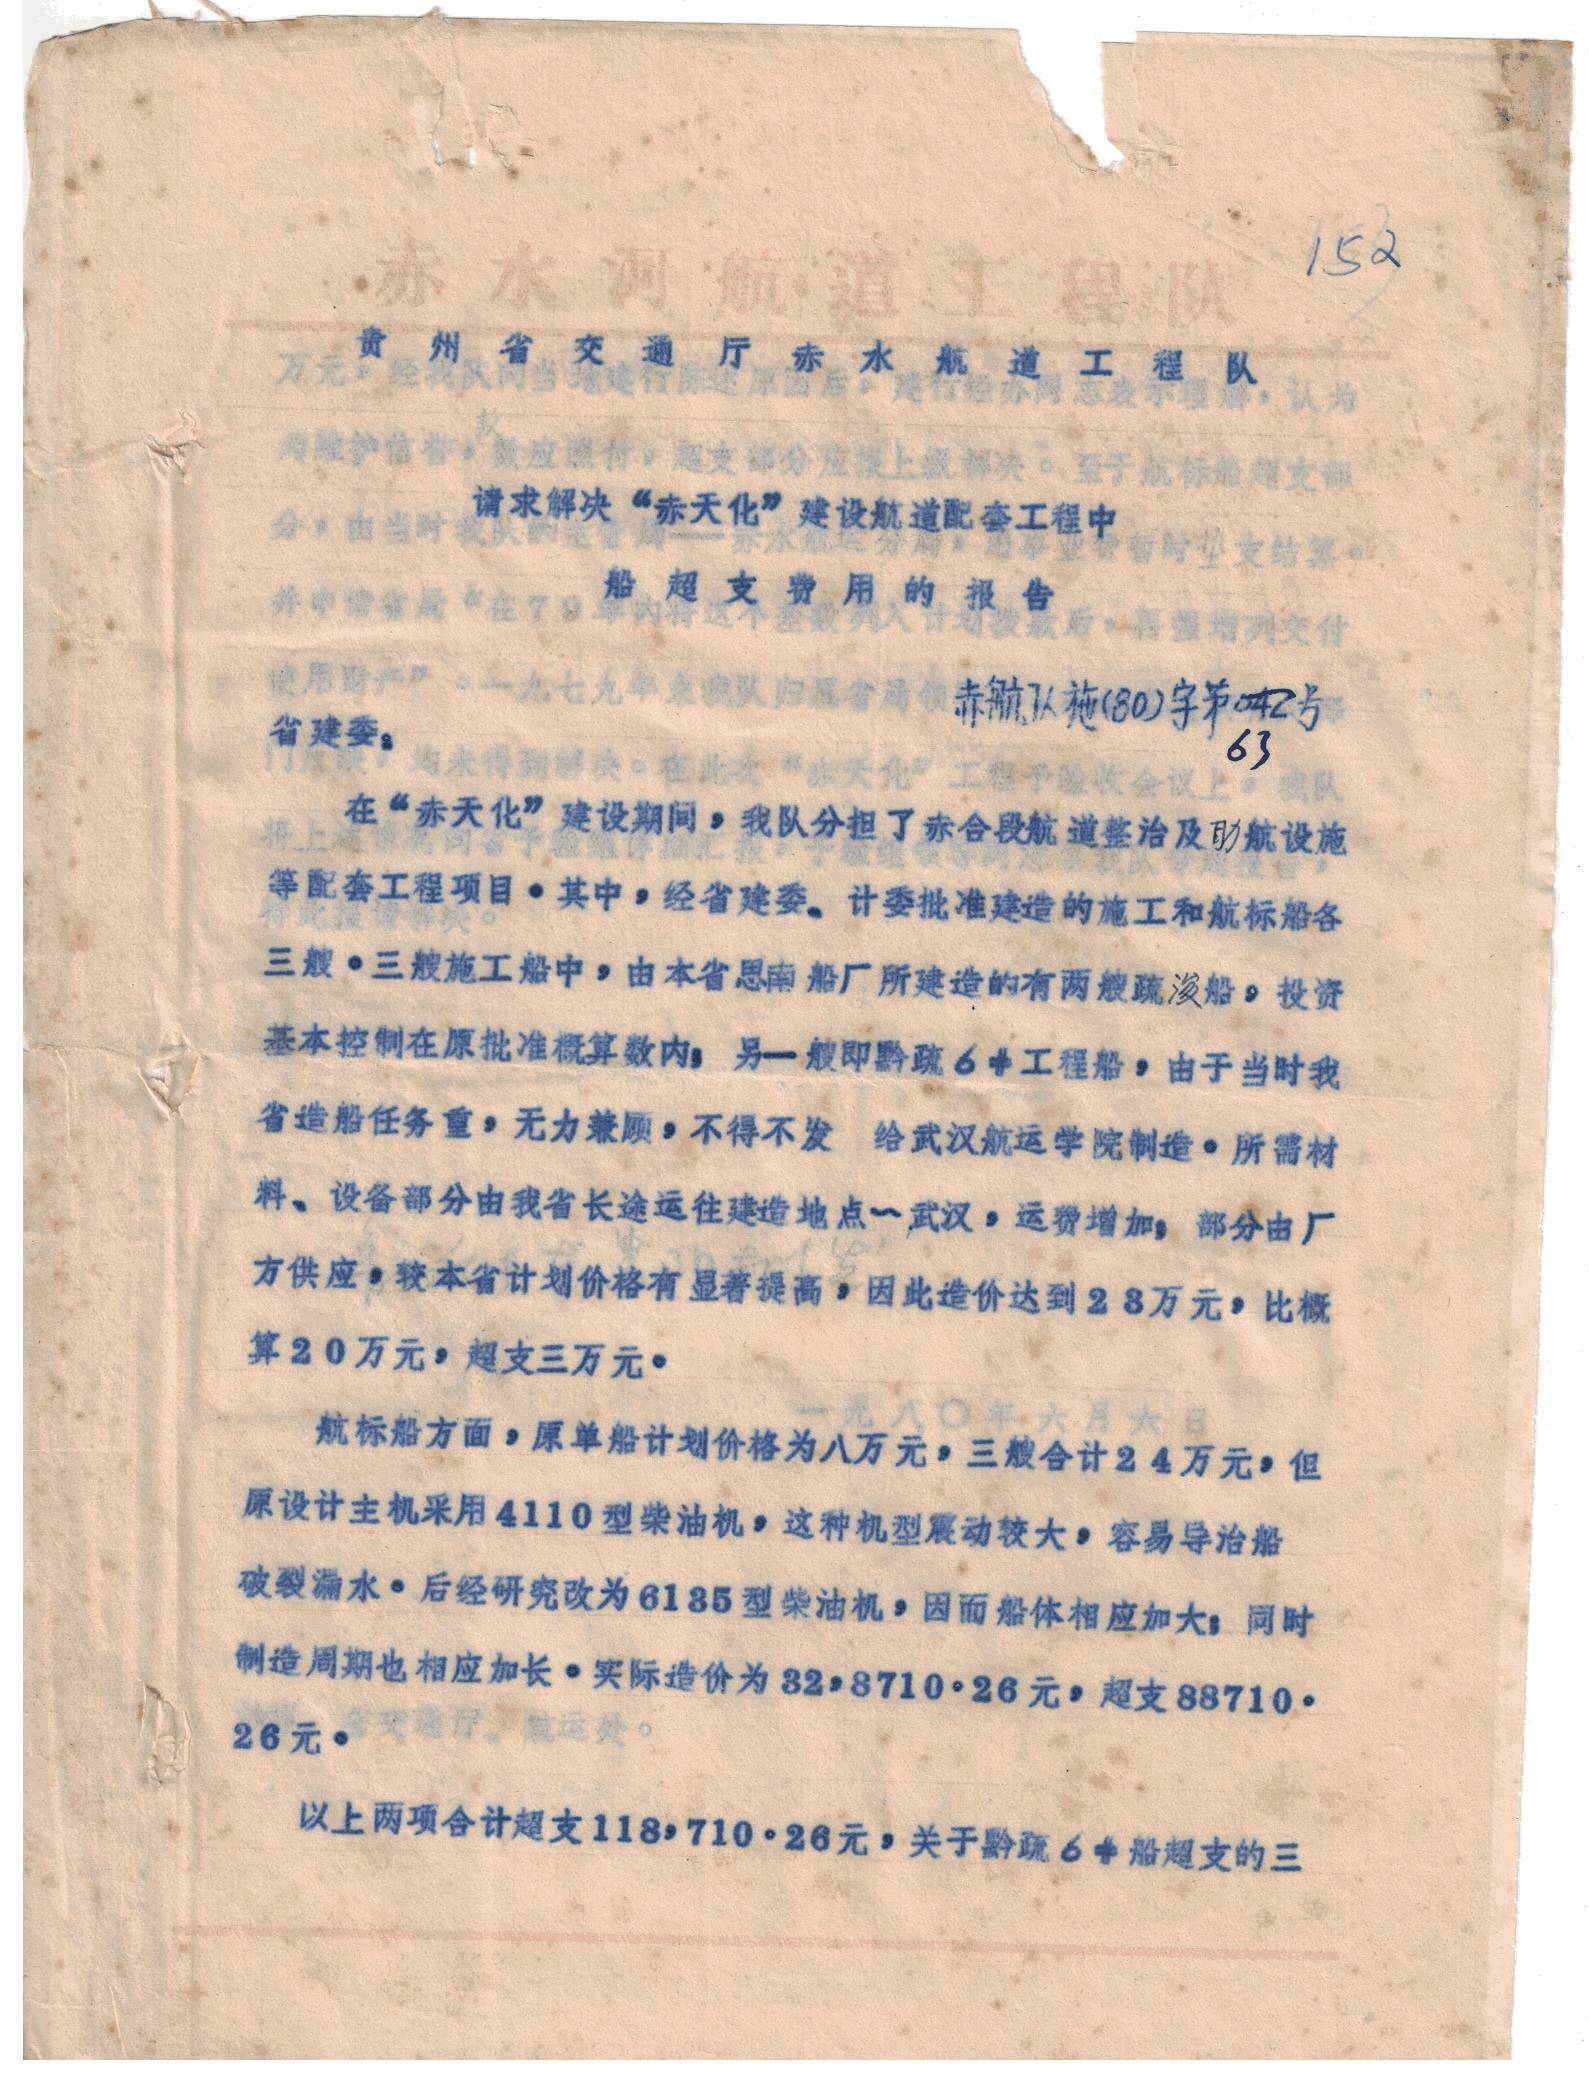 152
赤水河航道工程队
贵州省交通厅赤水航道工程队
请求解决“赤天化”建设航道配套工程中
船超支费用的报告
赤航队施(80)字第042号
63
省建委：
在“赤天化”建设期间，我队分担了赤合段航道整治及助航设施
等配套工程项目。其中，经省建委、计委批准建造的施工和航标船各
三艘。三艘施工船中，由本省思南船厂所建造的有两艘疏浚船，投资
基本控制在原批准概算数内；另一艘即黔疏6#工程船，由于当时我
省造船任务重，无力兼顾，不得不发 给武汉航运学院制造。所需材
料、设备部分由我省长途运往建造地点—武汉，运费增加；部分由厂
方供应，较本省计划价格有显著提高，因此造价达到23万元，比概
算20万元，超支三万元。
航标船方面，原单船计划价格为八万元，三艘合计24万元，但
原设计主机采用4110型柴油机，这种机型震动较大，容易导治船
破裂漏水。后经研究改为6135型柴油机，因而船体相应加大；同时
制造周期也相应加长。实际造价为32，8710·26元，超支88710·
26元。
以上两项合计超支118，710·26元，关于黔疏6#船超支的三
一九八〇年六月六日
省交通厅、航运处。